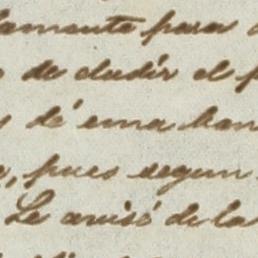 lamente para
de eludir el p
dé una ban
, pues segun
Le avisé de la